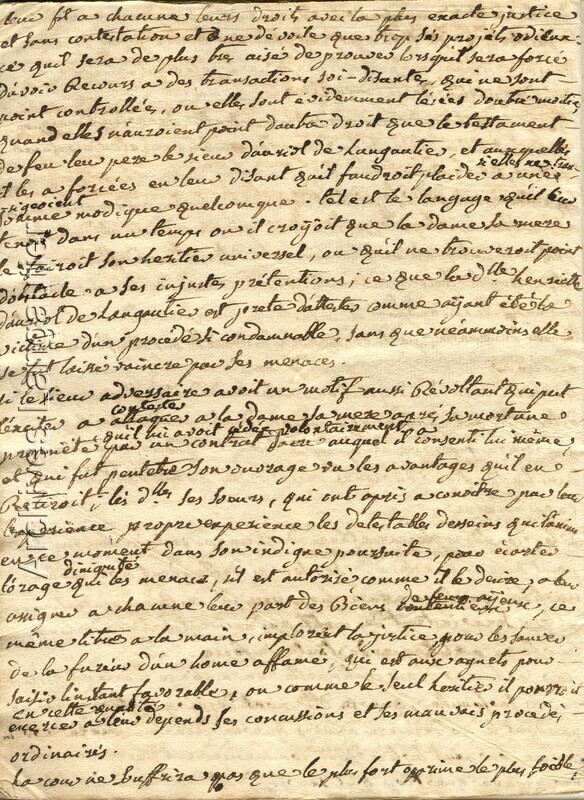 leur fit a chacune leurs droits avec la plus exacte justice
et sans contestation et one devoile que trop ses projets odieux
ce quil sera de plus tres aisé de prouver lorsquil sera forcé
davoir Recours a des transactions soi-disantes, qui ne sont
point controllées, ou elles sont évidemment lésées doutre moitié
quand elles nauroient point dautre droit que le testament
de feu leur pere le sieur dauriol de Langautier, et auxquelles
il les a forcées en leur disant quil faudroit plaider a une
si elles ne
somme modique quelconque. tel est le langage quil leur
tenoit dans un temps ou il croyoit que la dame sa mere
le fairoit son heritier universel, ou quil ne trouveroit point
dobstacle a ses injustes prétentions; ce que la dlle henriette
dauriol de Langautier est prete dattester comme ayant été la
victime dun procédé si condamnable, sans que néammoins elle
se soit laissé vaincre par ses menaces.
si le sieur adversaire avoit un motif aussi Révoltant qui put
lexciter a attaquer a la dame sa mere apres sa mort une
contester
proprieté quil lui avoit cédé volontairement
par un contrat sacre auquel il consenti lui même,
et qui fut peutetre son ouvrage vu les avantages quil en
Retiroit, les dlles ses soeurs, qui ont apris a conoitre par leur
experience propre experience les detestables desseins qui laniment
en ce moment dans son indigne poursuite, pour écarter
dindignité
lorage qui les menace, sil est autorizé comme il le desire, a leur
assigner a chacune leur part des Biens de leurs ajeux, ce
même titre a la main, implorent la justice pour les sauver
de la fureur dun home affamé, qui est aux aguets pour
saisir linstant favorable, ou comme le seul heritier il pourroit
en cette qualité
exercer a leur depends ses concussions et ses mauvais procedés
ordinaires.
La cour ne souffrira pas que le plus fort oprime le plus foible
Archives Lartigautier